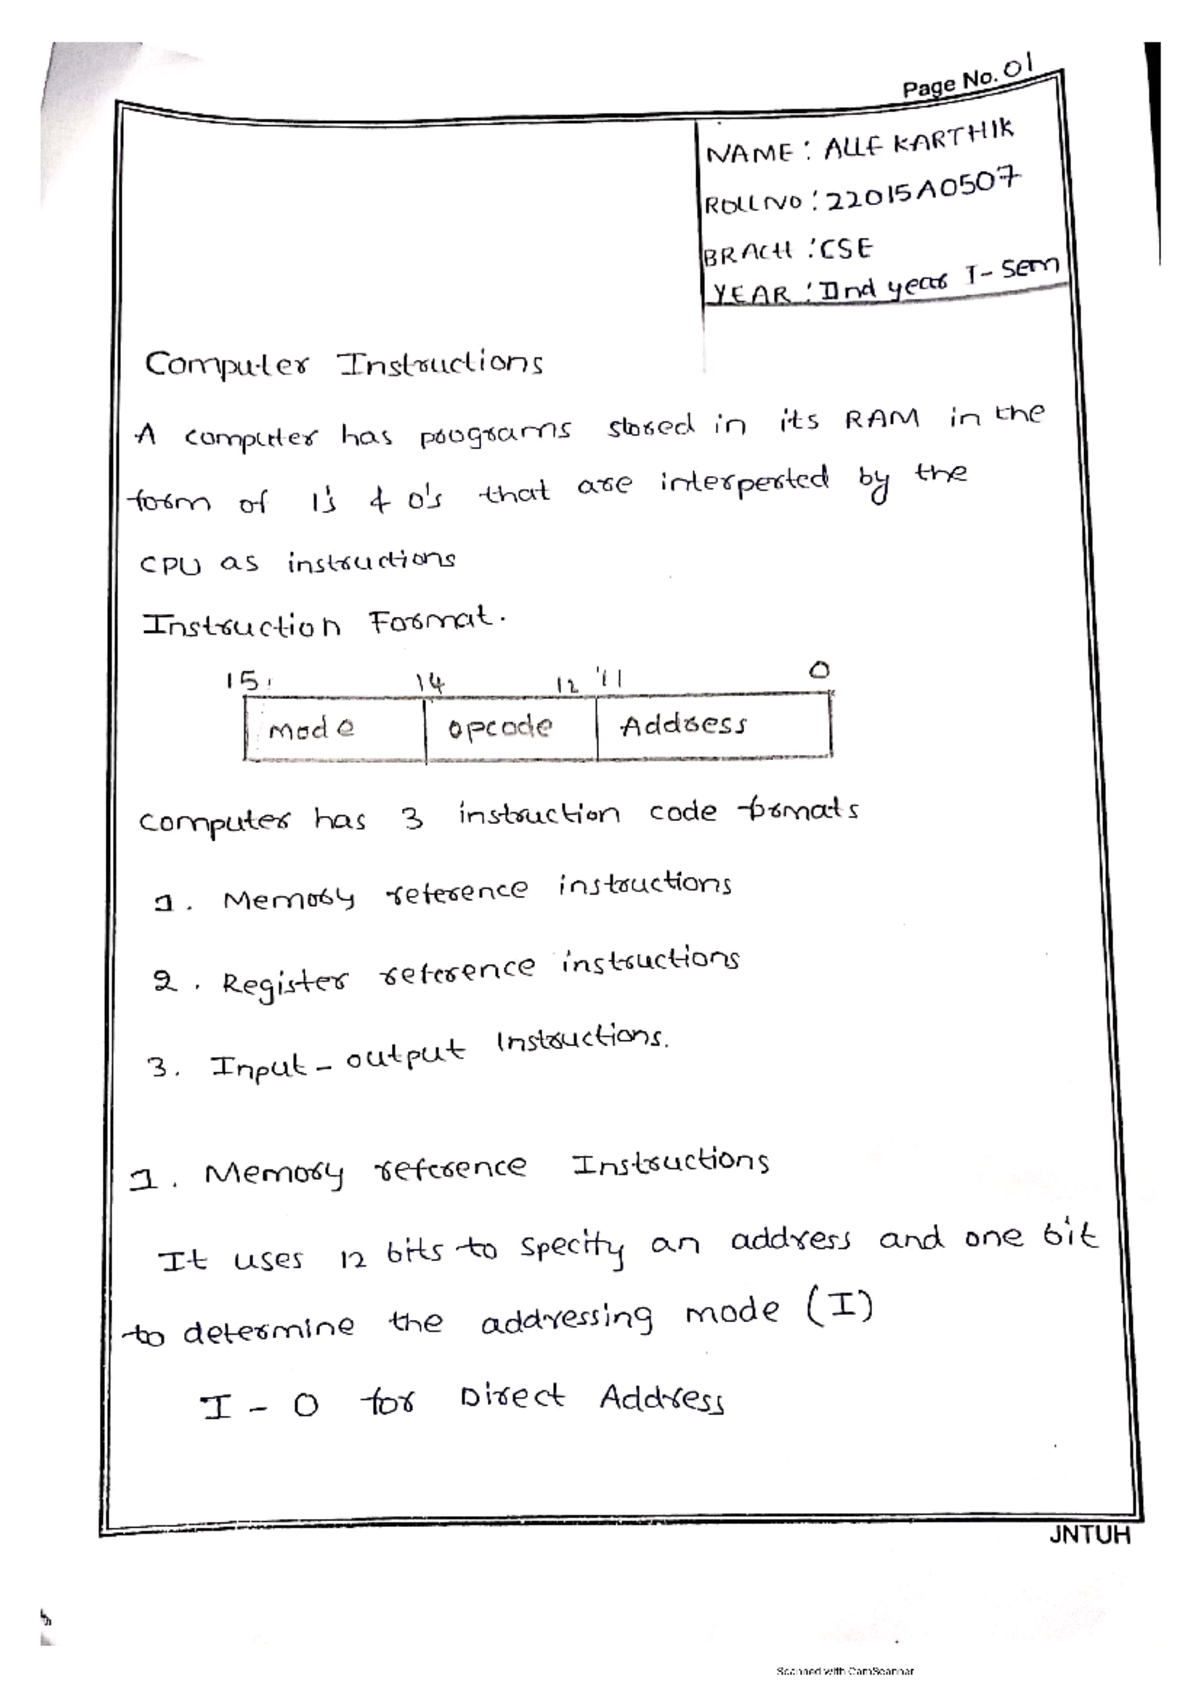 Page No. 01
NAME : ALLE KARTHIK
ROLLNO : 22015A0507
BRACH : CSE
YEAR : IInd year I - Sem
Computer Instructions
A computer has programs stored in its RAM in the
form of 1's & 0's that are interperted by the
CPU as instructions
Instruction Format.
15 14 12 11 0
Mode opcode Address
computer has 3 instruction code formats
1. Memory reference instructions
2. Register reference instructions
3. Input - output Instructions.
1. Memory reference Instructions
It uses 12 bits to specify an address and one bit
to determine the addressing mode (I)
I - 0 for Direct Address
JNTUH
Scanned with CamScanner